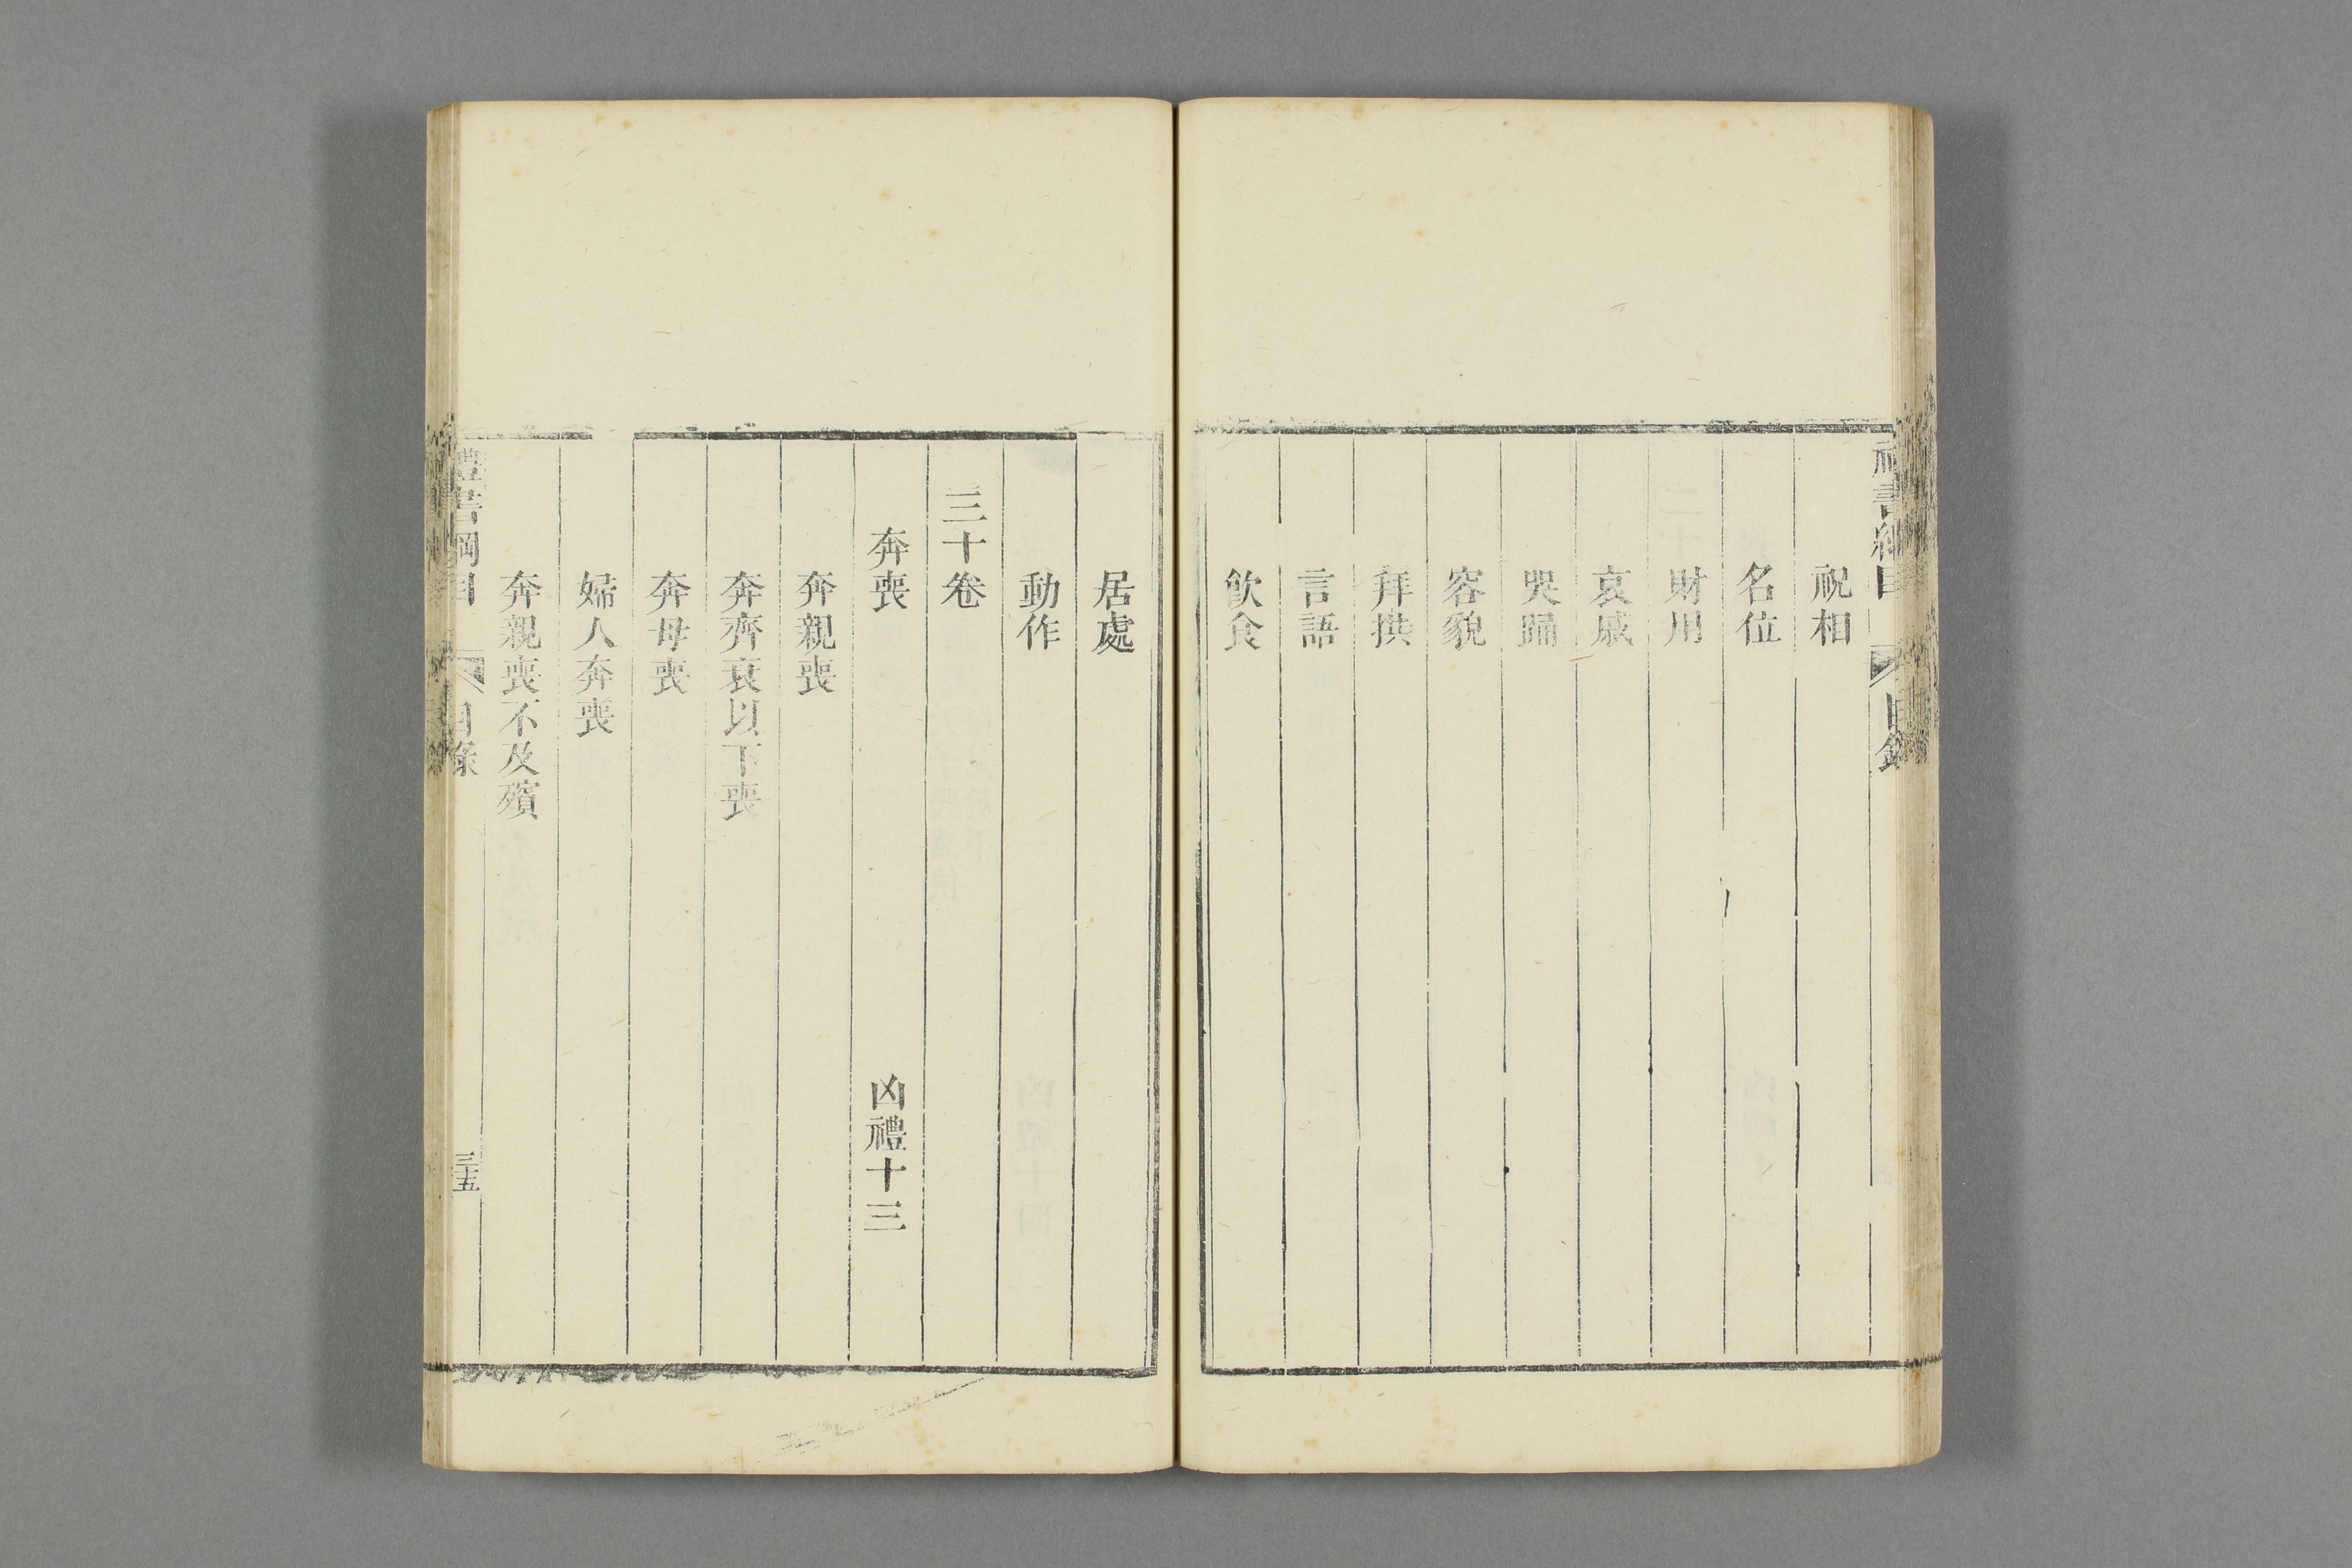 禮書綱目
目錄
祝相
名位
財用
哀戚
哭踊
容貌
拜拱
言語
飲食
居處
動作
三十卷
奔喪
凶禮十三
奔親喪
奔齊衰以下喪
奔母喪
婦人奔喪
奔親喪不及殯
禮書綱目
目錄
三五